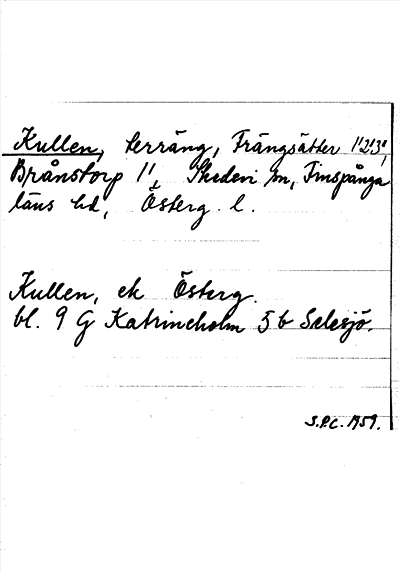 Kullen, terräng, Frängsätter 1¹2¹3¹,
Brånstorp 1¹, Skedevi sn, Finspånga
läns hd, Österg. l.
Kullen, ek Österg.
bl. 9 G Katrineholm 5 b Salesjö.
S.P.C. 1959.